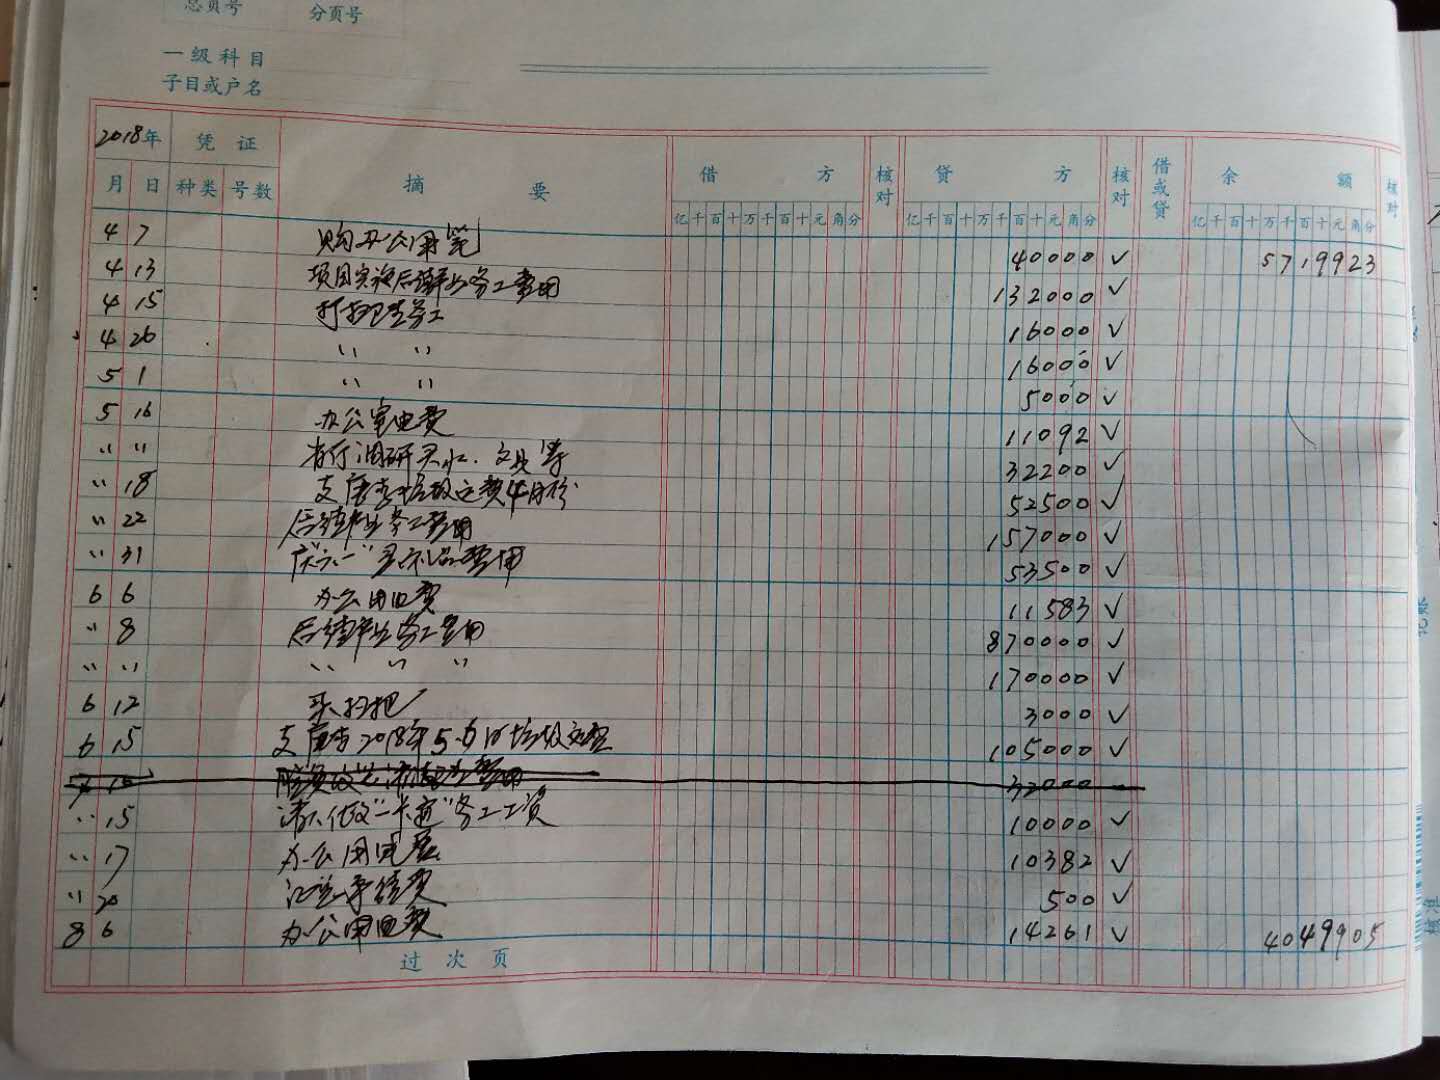 总页号 分页号
一级科目
子目或户名
2018年 凭证 摘要 借方 核对 贷方 核对 借或贷 余额 核对
月 日 种类 号数 亿千百十万千百十元角分 亿千百十万千百十元角分 亿千百十万千百十元角分
4 7 购办公用笔 40000 ✓ 5719923
4 13 项目实施后续产业务工费用 132000 ✓
4 15 打扫卫生务工 16000 ✓
4 26 〃 〃 16000 ✓
5 1 〃 〃 5000 ✓
5 16 办公室电费 11092 ✓
〃 〃 省行调研买水、文具等 32200 ✓
〃 18 支唐李垃圾运费4月份 52500 ✓
〃 22 后续产业务工费用 157000 ✓
〃 31 庆“六一”买礼品费用 53500 ✓
6 6 办公用电费 11583 ✓
〃 8 后续产业务工费用 870000 ✓
〃 〃 〃 〃 〃 170000 ✓
6 12 买扫把 3000 ✓
6 15 支唐李2018年5.6月垃圾运费 105000 ✓
32000
〃 15 务工工资 10000 ✓
〃 17 办公用电费 10382 ✓
〃 20 手续费 500 ✓
8 6 办公用电费 14261 ✓ 4049905
过次页